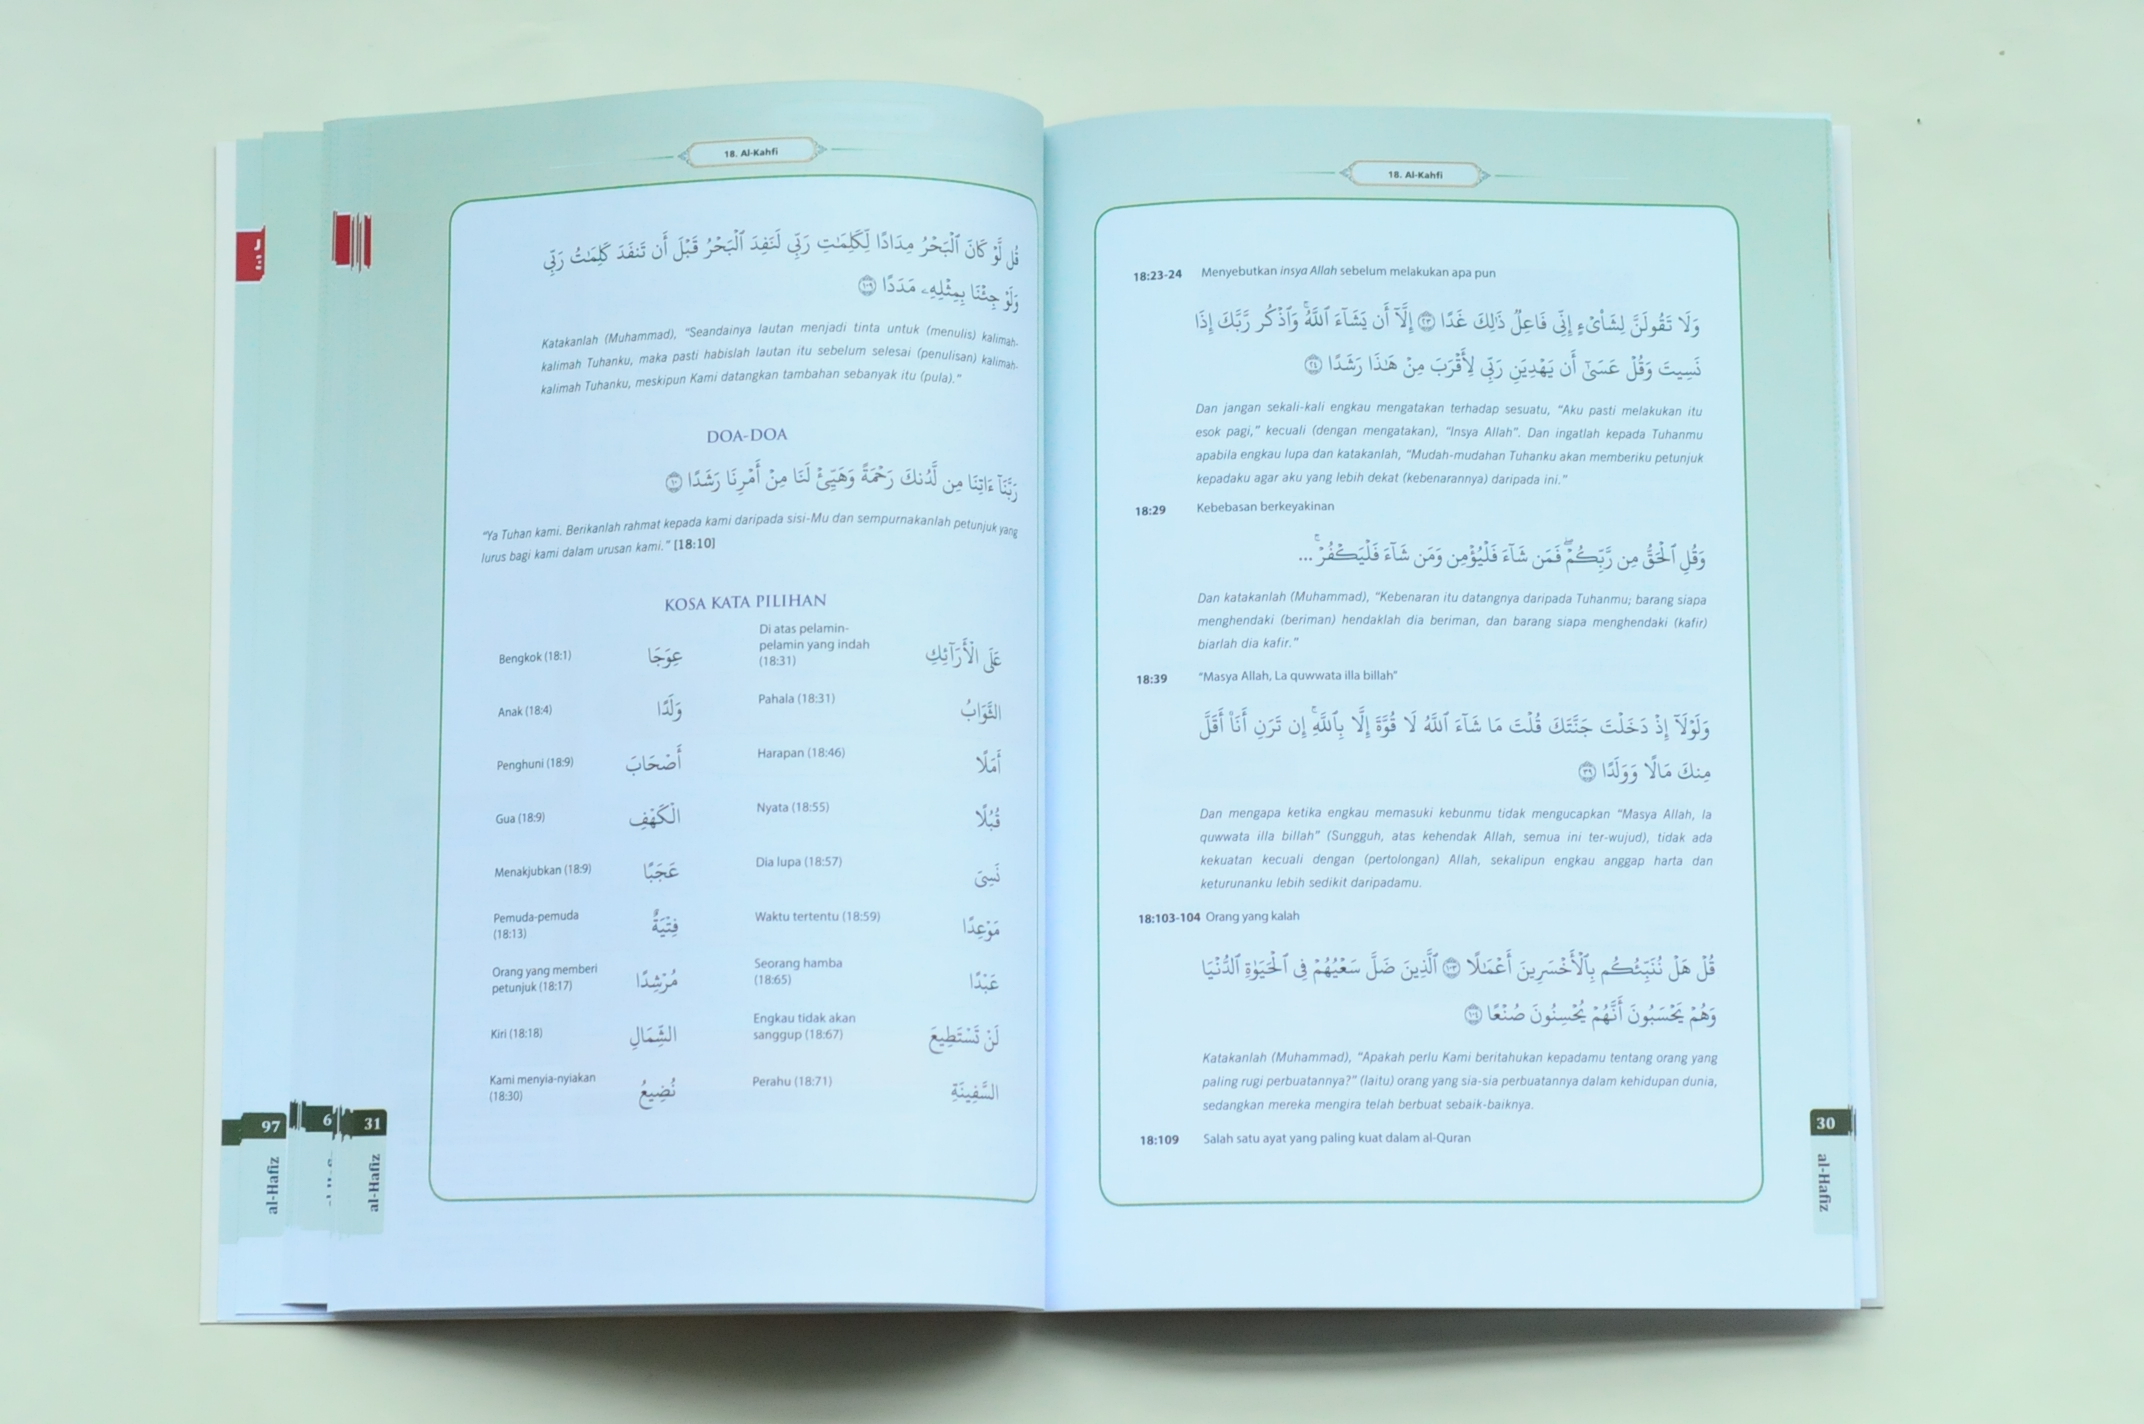 18. Al-Kahfi
18:23-24 Menyebutkan insya Allah sebelum melakukan apa pun
وَلَا تَقُولَنَّ لِشَا۟ىْءٍ إِنِّى فَاعِلٌ ذَٰلِكَ غَدًا ٢٣ إِلَّآ أَن يَشَآءَ ٱللَّهُ ۚ وَٱذْكُر رَّبَّكَ إِذَا
نَسِيتَ وَقُلْ عَسَىٰٓ أَن يَهْدِيَنِ رَبِّى لِأَقْرَبَ مِنْ هَـٰذَا رَشَدًا ٢٤
Dan jangan sekali-kali engkau mengatakan terhadap sesuatu, “Aku pasti melakukan itu
esok pagi,” kecuali (dengan mengatakan), “Insya Allah”. Dan ingatlah kepada Tuhanmu
apabila engkau lupa dan katakanlah, “Mudah-mudahan Tuhanku akan memberiku petunjuk
kepadaku agar aku yang lebih dekat (kebenarannya) daripada ini.”
18:29 Kebebasan berkeyakinan
وَقُلِ ٱلْحَقُّ مِن رَّبِّكُمْ ۖ فَمَن شَآءَ فَلْيُؤْمِن وَمَن شَآءَ فَلْيَكْفُرْ ۚ ...
Dan katakanlah (Muhammad), “Kebenaran itu datangnya daripada Tuhanmu; barang siapa
menghendaki (beriman) hendaklah dia beriman, dan barang siapa menghendaki (kafir)
biarlah dia kafir.”
18:39 “Masya Allah, La quwwata illa billah”
وَلَوْلَآ إِذْ دَخَلْتَ جَنَّتَكَ قُلْتَ مَا شَآءَ ٱللَّهُ لَا قُوَّةَ إِلَّا بِٱللَّهِ ۚ إِن تَرَنِ أَنَا۠ أَقَلَّ
مِنكَ مَالًا وَوَلَدًا ٣٩
Dan mengapa ketika engkau memasuki kebunmu tidak mengucapkan “Masya Allah, la
quwwata illa billah” (Sungguh, atas kehendak Allah, semua ini ter-wujud), tidak ada
kekuatan kecuali dengan (pertolongan) Allah, sekalipun engkau anggap harta dan
keturunanku lebih sedikit daripadamu.
18:103-104 Orang yang kalah
قُلْ هَلْ نُنَبِّئُكُم بِٱلْأَخْسَرِينَ أَعْمَـٰلًا ١٠٣ ٱلَّذِينَ ضَلَّ سَعْيُهُمْ فِى ٱلْحَيَوٰةِ ٱلدُّنْيَا
وَهُمْ يَحْسَبُونَ أَنَّهُمْ يُحْسِنُونَ صُنْعًا ١٠٤
Katakanlah (Muhammad), “Apakah perlu Kami beritahukan kepadamu tentang orang yang
paling rugi perbuatannya?” (Iaitu) orang yang sia-sia perbuatannya dalam kehidupan dunia,
sedangkan mereka mengira telah berbuat sebaik-baiknya.
18:109 Salah satu ayat yang paling kuat dalam al-Quran
30
al-Hafiz
18. Al-Kahfi
قُل لَّوْ كَانَ ٱلْبَحْرُ مِدَادًا لِّكَلِمَـٰتِ رَبِّى لَنَفِدَ ٱلْبَحْرُ قَبْلَ أَن تَنفَدَ كَلِمَـٰتُ رَبِّى
وَلَوْ جِئْنَا بِمِثْلِهِۦ مَدَدًا ١٠٩
Katakanlah (Muhammad), “Seandainya lautan menjadi tinta untuk (menulis) kalimah-
kalimah Tuhanku, maka pasti habislah lautan itu sebelum selesai (penulisan) kalimah-
kalimah Tuhanku, meskipun Kami datangkan tambahan sebanyak itu (pula).”
DOA-DOA
رَبَّنَآ ءَاتِنَا مِن لَّدُنكَ رَحْمَةً وَهَيِّئْ لَنَا مِنْ أَمْرِنَا رَشَدًا ١٠
“Ya Tuhan kami. Berikanlah rahmat kepada kami daripada sisi-Mu dan sempurnakanlah petunjuk yang
lurus bagi kami dalam urusan kami.” [18:10]
KOSA KATA PILIHAN
Bengkok (18:1) عِوَجَا
Anak (18:4) وَلَدًا
Penghuni (18:9) أَصْحَابَ
Gua (18:9) الْكَهْفِ
Menakjubkan (18:9) عَجَبًا
Pemuda-pemuda
(18:13) فِتْيَةٌ
Orang yang memberi
petunjuk (18:17) مُرْشِدًا
Kiri (18:18) الشِّمَالِ
Kami menyia-nyiakan
(18:30) نُضِيعُ
Di atas pelamin-
pelamin yang indah
(18:31) عَلَى الْأَرَآئِكِ
Pahala (18:31) الثَّوَابُ
Harapan (18:46) أَمَلًا
Nyata (18:55) قُبُلًا
Dia lupa (18:57) نَسِىَ
Waktu tertentu (18:59) مَوْعِدًا
Seorang hamba
(18:65) عَبْدًا
Engkau tidak akan
sanggup (18:67) لَنْ تَسْتَطِيعَ
Perahu (18:71) السَّفِينَةِ
31
al-Hafiz
6
97
al-Hafiz